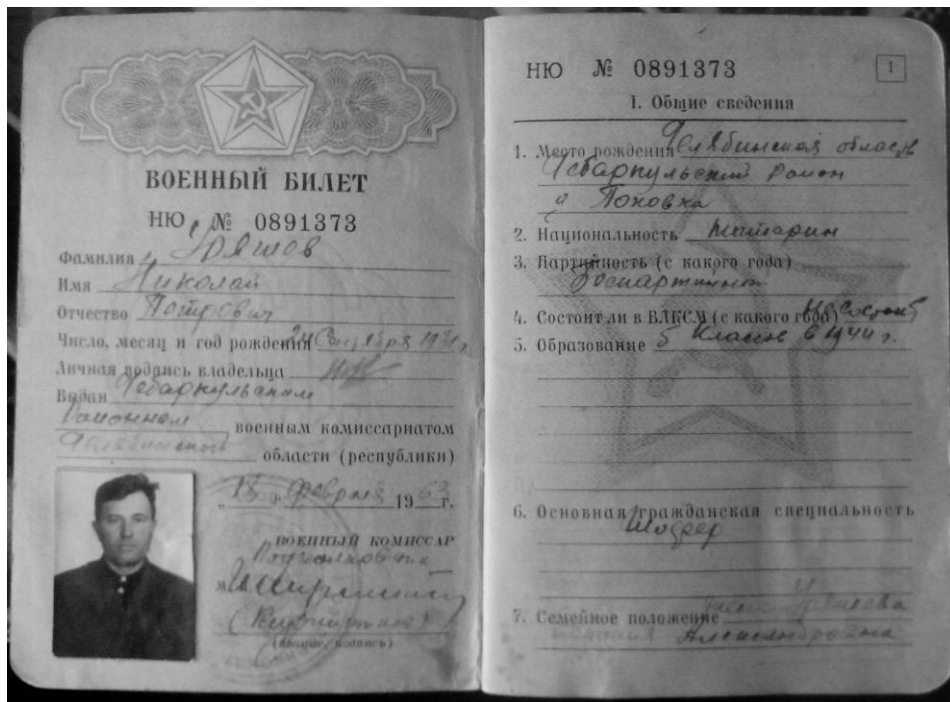 ВОЕННЫЙ БИЛЕТ
НЮ № 0891373
Фамилия Уряшов
Имя Николай
Отчество Петрович
Число, месяц и год рождения 24 Сентября 1931 г.
Личная подпись владельца
Выдан Чебаркульским
Районным военным комиссариатом
Челябинской области (республики)
„18 „ февраля 1963 г.
ВОЕННЫЙ КОМИССАР
Подполковник
(звание, подпись)
НЮ № 0891373
1
I. Общие сведения
1. Место рождения Челябинская область
Чебаркульский Район
д Поповка
2. Национальность татарин
3. Партийность (с какого года)
беспартийный
4. Состоит ли в ВЛКСМ (с какого года) не состоит
5. Образование 5 Классов в 1944 г.
6. Основная гражданская специальность
Шофер
7. Семейное положение жена Уряшова
Александровна